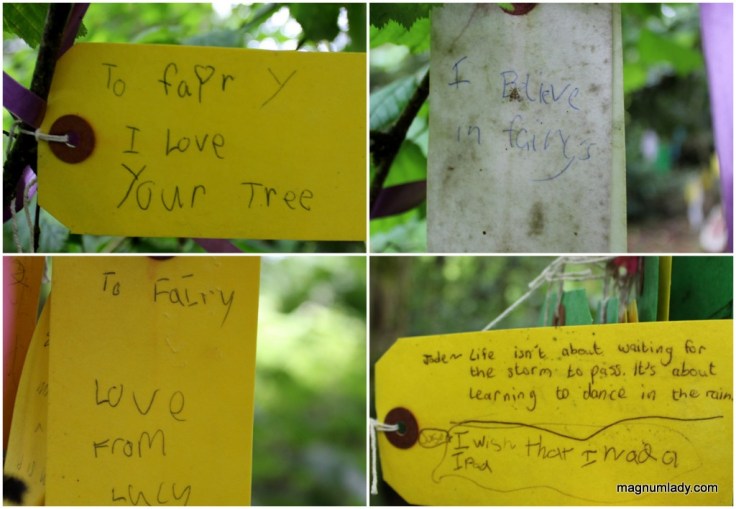 To fairy
I Love
Your Tree
I Blieve
in fairys
To Fairy
Love
From
Lucy
Jade~ Life isn't about waiting for
the storm to pass. It's about
learning to dance in the rain.
I wish that I had a
IPad
magnumlady.com